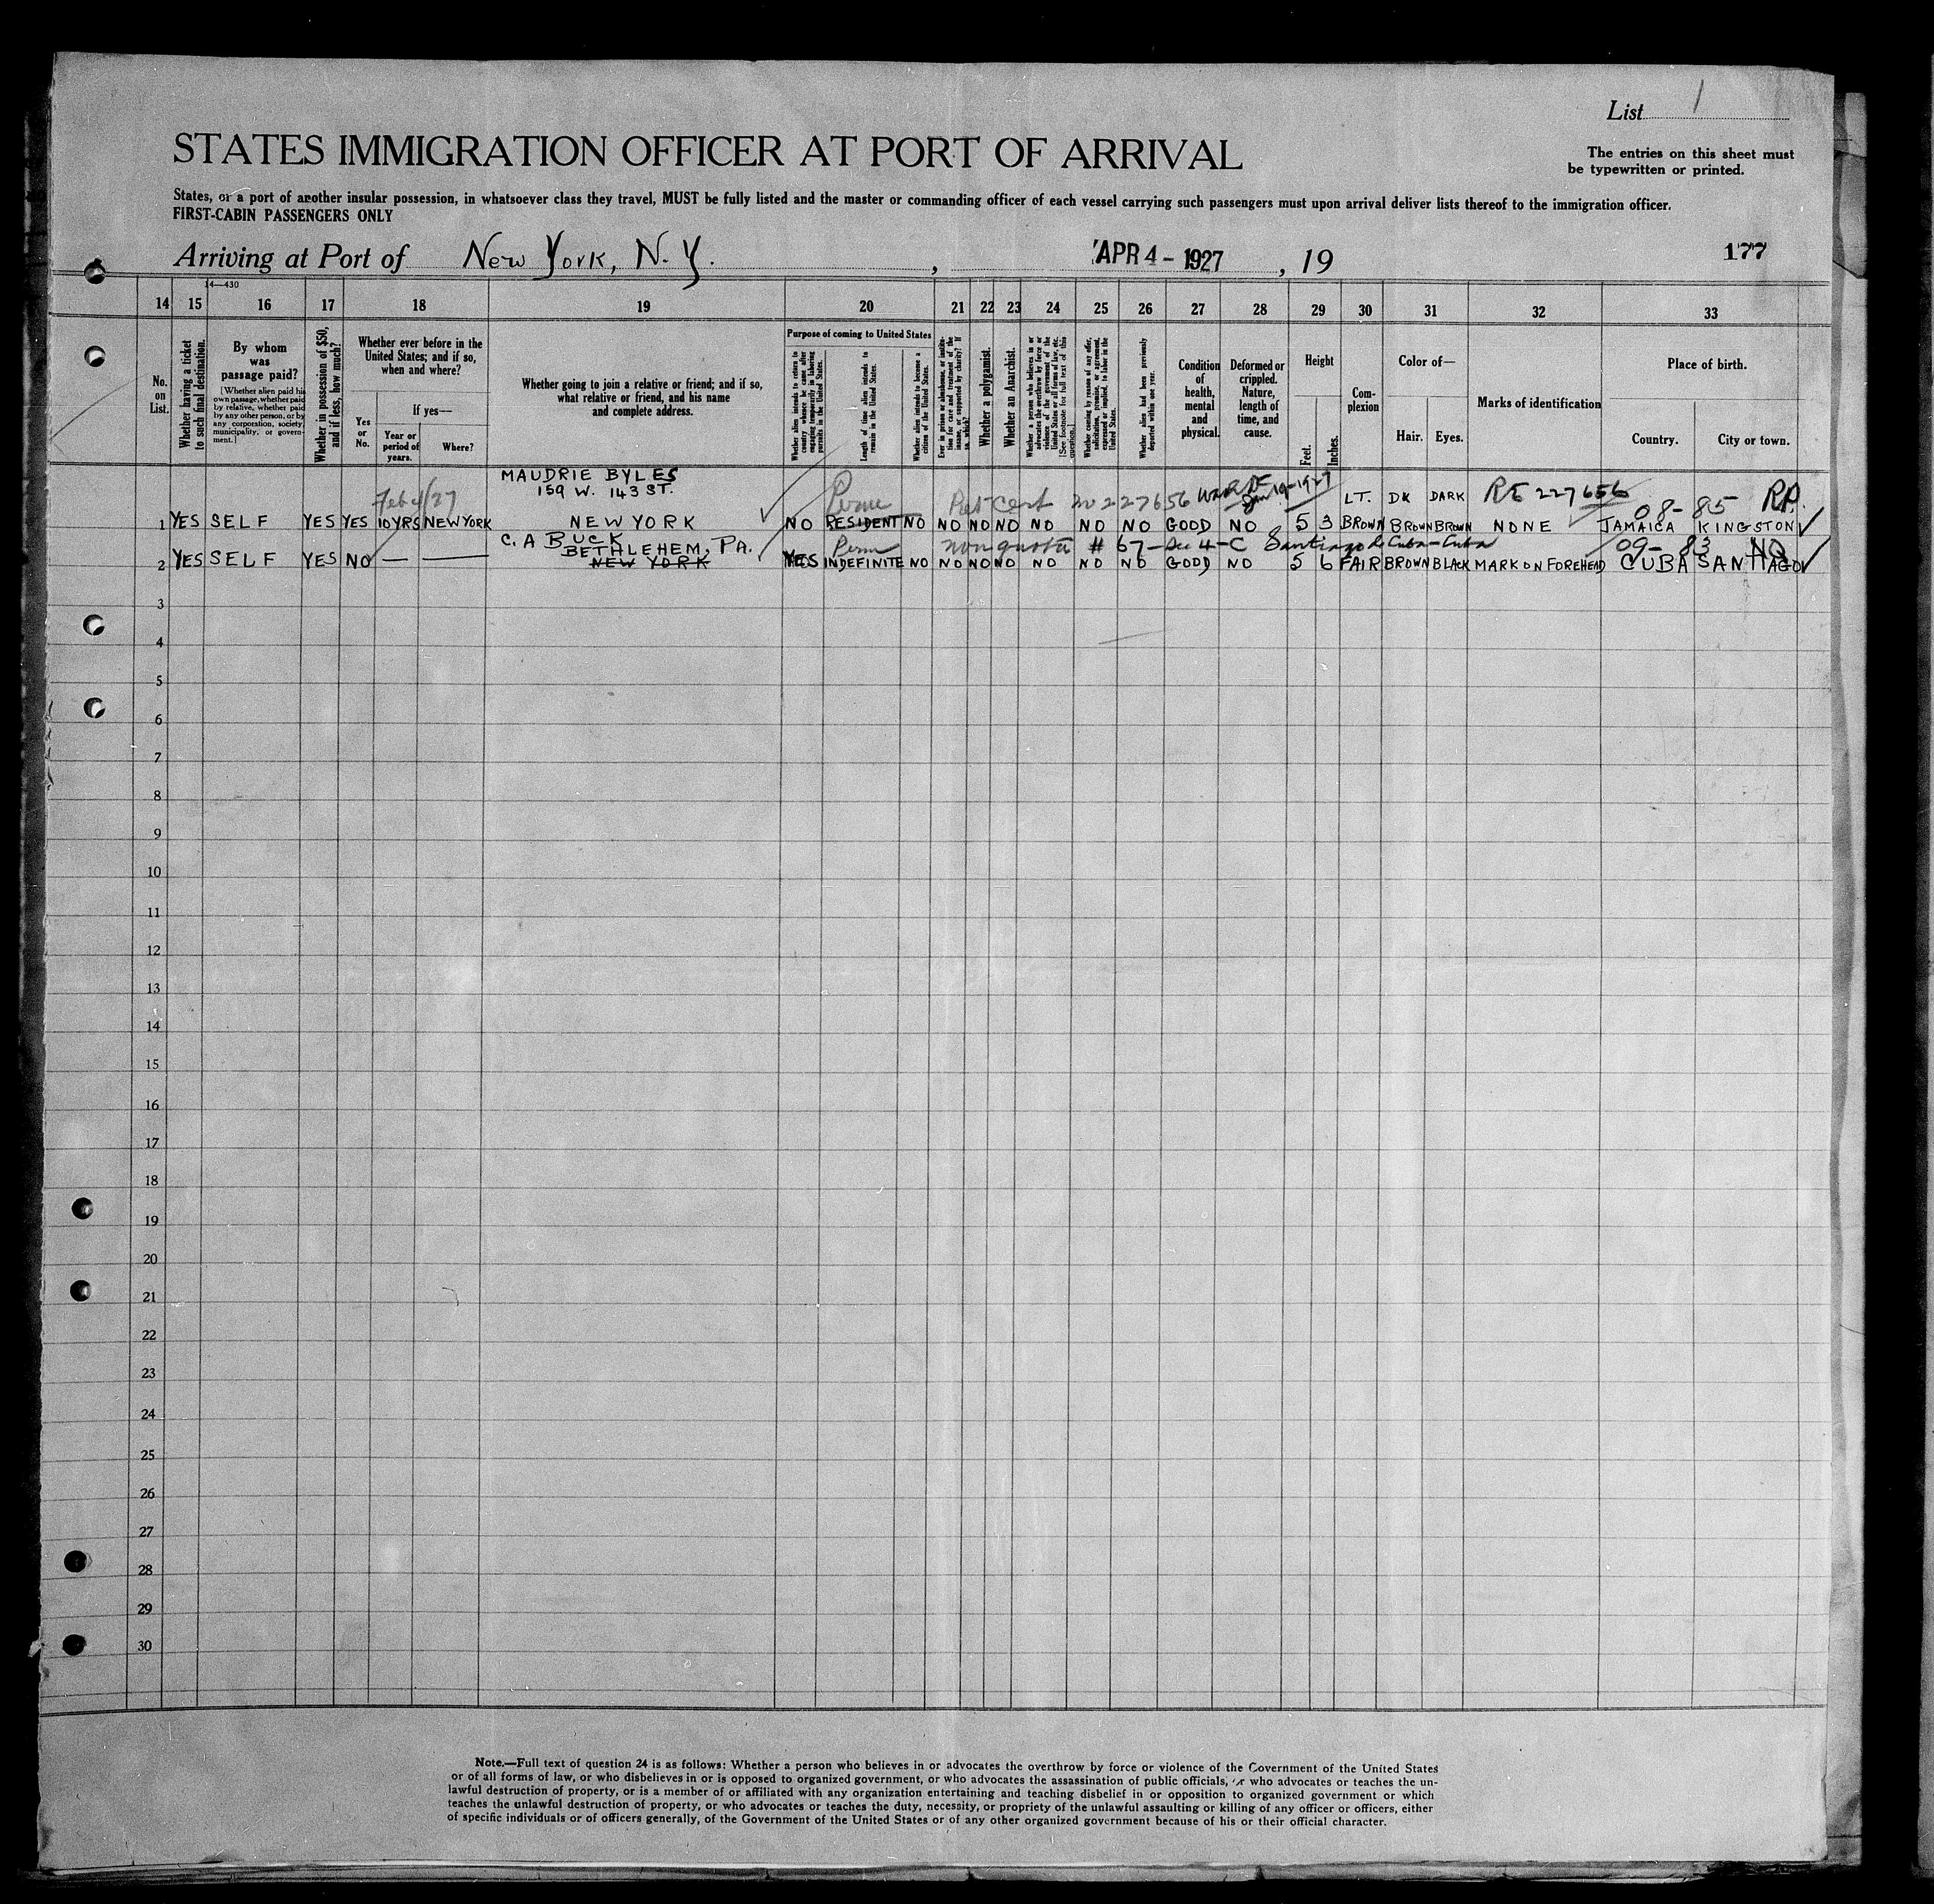 List 1
STATES IMMIGRATION OFFICER AT PORT OF ARRIVAL
The entries on this sheet must
be typewritten or printed.
States, or a port of another insular possession, in whatsoever class they travel, MUST be fully listed and the master or commanding officer of each vessel carrying such passengers must upon arrival deliver lists thereof to the immigration officer.
FIRST-CABIN PASSENGERS ONLY
Arriving at Port of New York, N.Y. , APR 4 - 1927 , 19 177
14—430
14 15 16 17 18 19 20 21 22 23 24 25 26 27 28 29 30 31 32 33
No. on List.
Whether having a ticket to such final destination.
By whom was passage paid?
[Whether alien paid his own passage, whether paid by relative, whether paid by any other person, or by any corporation, society, municipality, or government.]
Whether in possession of $50, and if less, how much?
Whether ever before in the United States; and if so, when and where?
Yes or No.
If yes—
Year or period of years.
Where?
Whether going to join a relative or friend; and if so, what relative or friend, and his name and complete address.
Purpose of coming to United States
Whether alien intends to return to country whence he came after engaging temporarily in laboring pursuits in the United States.
Length of time alien intends to remain in the United States.
Whether alien intends to become a citizen of the United States.
Ever in prison or almshouse, or institution for care and treatment of the insane, or supported by charity? If so, which?
Whether a polygamist.
Whether an Anarchist.
Whether a person who believes in or advocates the overthrow by force or violence of the Government of the United States or all forms of law, etc. [See footnote for full text of this question.]
Whether coming by reason of any offer, solicitation, promise, or agreement, expressed or implied, to labor in the United States.
Whether alien had been previously deported within one year.
Condition of health, mental and physical.
Deformed or crippled. Nature, length of time, and cause.
Height
Feet. Inches.
Complexion
Color of—
Hair. Eyes.
Marks of identification
Place of birth.
Country. City or town.
MAUDRIE BYLES
159 W. 143 ST.
Feb 4/27 Perm Ret cert no 227656 Jan 19-1927 LT. DK DARK RE 227656 08-85 RP.
1 YES SELF YES YES 10 YRS NEW YORK NEW YORK NO RESIDENT NO NO NO NO NO NO NO GOOD NO 5 3 BROWN BROWN BROWN NONE JAMAICA KINGSTON
C. A BUCK
BETHLEHEM, PA. Perm non quota # 67 - Sec 4-C Santiago de Cuba - Cuba 09-83 NQ
2 YES SELF YES NO — — NEW YORK YES INDEFINITE NO NO NO NO NO NO NO GOOD NO 5 6 FAIR BROWN BLACK MARK ON FOREHEAD CUBA SANTIAGO
3
4
5
6
7
8
9
10
11
12
13
14
15
16
17
18
19
20
21
22
23
24
25
26
27
28
29
30
Note.—Full text of question 24 is as follows: Whether a person who believes in or advocates the overthrow by force or violence of the Government of the United States
or of all forms of law, or who disbelieves in or is opposed to organized government, or who advocates the assassination of public officials, or who advocates or teaches the un-
lawful destruction of property, or is a member of or affiliated with any organization entertaining and teaching disbelief in or opposition to organized government or which
teaches the unlawful destruction of property, or who advocates or teaches the duty, necessity, or propriety of the unlawful assaulting or killing of any officer or officers, either
of specific individuals or of officers generally, of the Government of the United States or of any other organized government because of his or their official character.